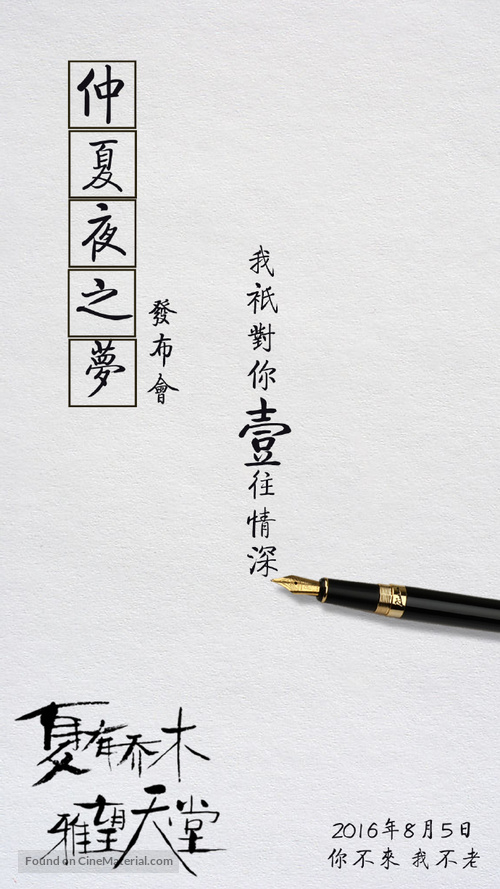 仲夏夜之夢
發布會
我祇對你壹往情深
夏有乔木
雅望天堂
2016年8月5日
你不來 我不老
Found on CineMaterial.com